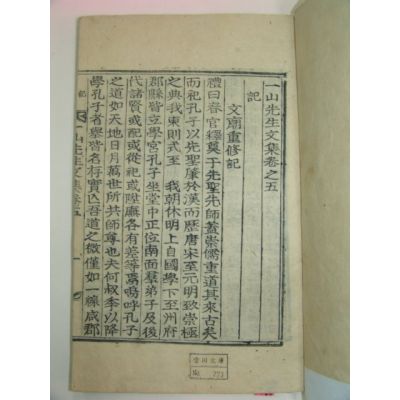 一山先生文集卷之五
記
文廟重修記
禮曰春官釋奠于先聖先師蓋崇儒重道其來古矣
而祀孔子以先聖肇於漢而歷唐宋至元明致崇極
之典我東則式至 我朝休明上自國學下至州府
郡縣皆立學宮孔子坐堂中正位南面羣弟子及後
代諸賢或配或從祀或陞廡各有差等焉嗚呼孔子
之道如天地日月萬世所共師尊也夫何叔季以降
學孔子者擧皆名存實亡吾道之微僅如一線咸郡
記
一山先生文集卷五
一